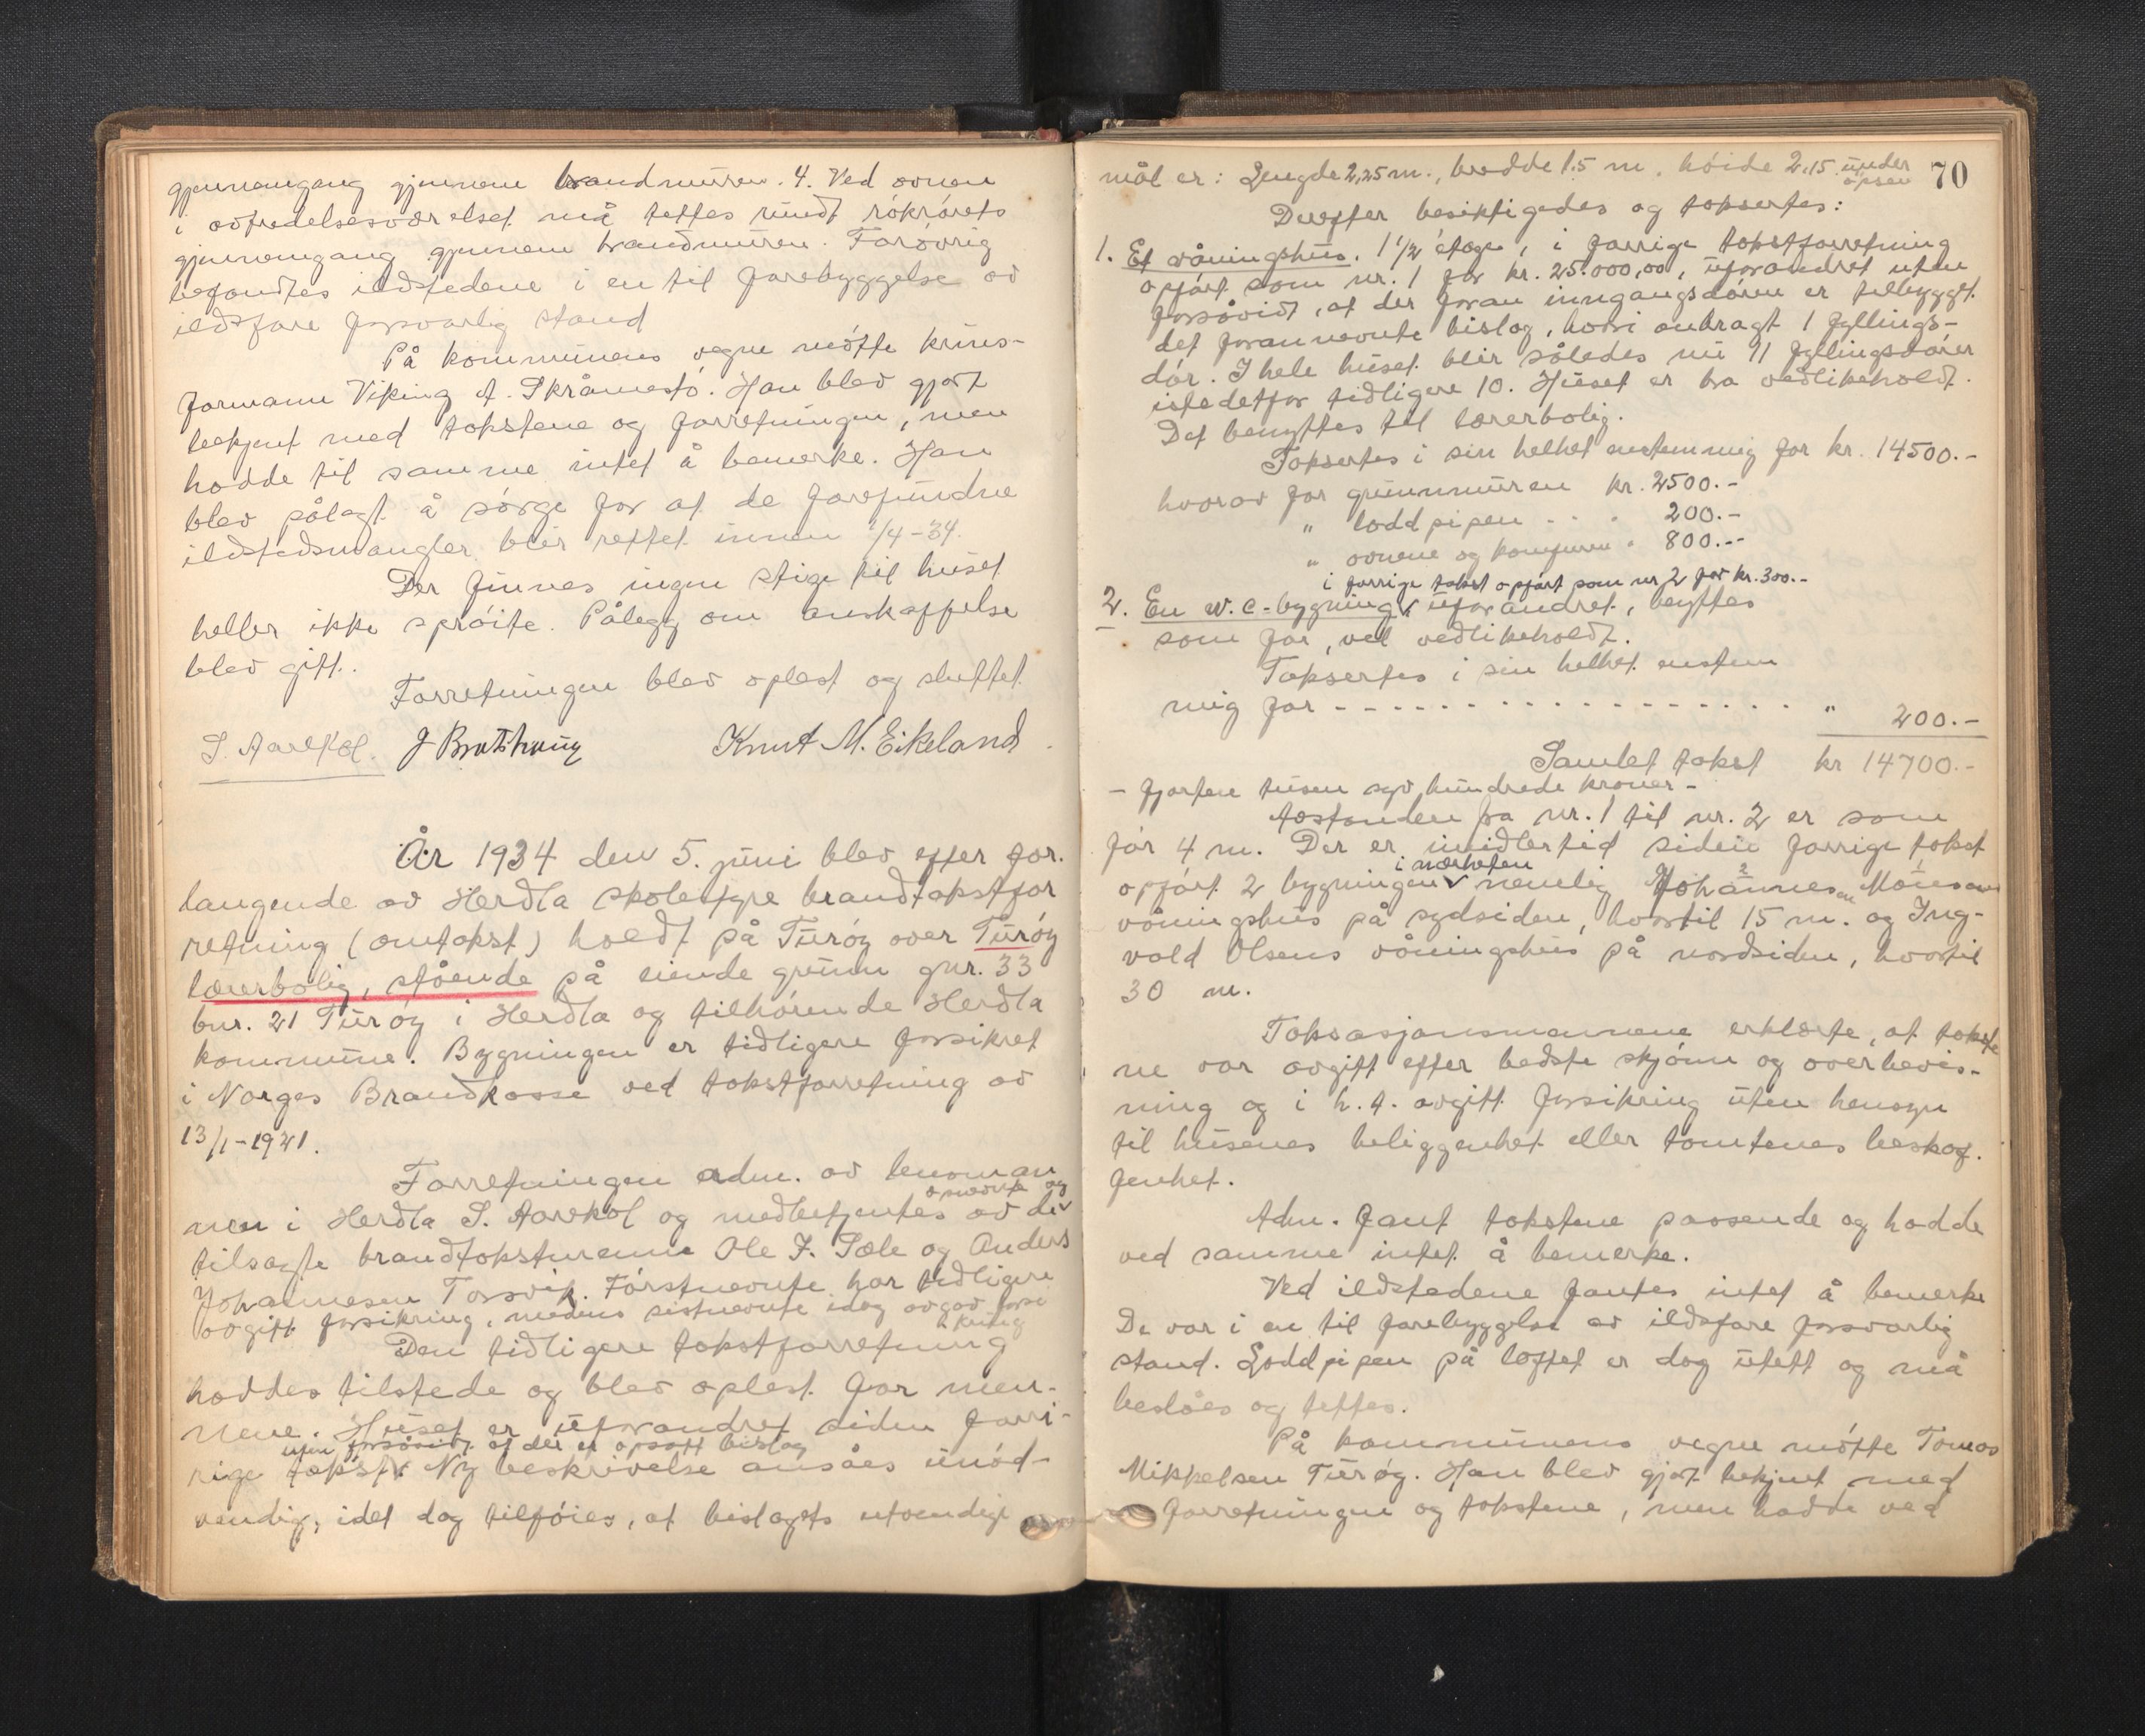 gjennemgang gjennem brandmuren. 4. Ved ovnen
i avfredelsesværelset må tettes rundt rökrörets
gjennemgang gjennem brandmuren. Forövrig
befandtes ildstedene i en til forebyggelse av
ildsfare forsvarlig stand
På kommunens vegne mötte krins-
formann Viking A. Skråmestö. Han blev gjort
bekjent med takstene og forretningen, men
hadde til samme intet å bemerke. Han
blev pålagt å sörge for at de forefundne
ildstedsmangler blir rettet innen 1/4-34.
Der finnes ingen stige til huset
heller ikke spröite. Pålegg om anskaffelse
blev gitt.
Forretningen blev oplest og sluttet
S. Aarekol. J Bratthaug Knut M. Eikeland
År 1934 den 5. juni blev efter for-
langende av Herdla skolestyre brandtakstfor
retning (omtakst) holdt på Turöy over Turöy
lærerbolig, stående på eiende grunn gnr. 33
bnr. 21 Turöy i Herdla og tilhörende Herdla
kommune. Bygningen er tidligere forsikret
i Norges Brandkasse ved takstforretning av
13/1-1921.
Forretningen adm. av lensman
nen i Herdla S. Aarekol og medbetjentes av de opnevnte og
tilsagte brandtakstmenn Ole J. Sæle og Anders
Johannesen Torsvik. Förstnevnte har tidligere
avgitt forsikring, medens sistnevnte idag avgav forsi
kring
Den tidligere takstforretning
haddes tilstede og blev oplest for men-
nene. Huset er uforandret siden forri-
uten forsåvidt at der er opsatt bislag
rige takst. Ny beskrivelse ansåes unöd-
vendig, idet dog tilföies, at bislagets utvendige
70
mål er: Lengde 2,25 m., bredde 1.5 m, höide 2,15 under
opsen
Derefter besiktigedes og taksertes:
1. Et våningshus. 1 1/2 étage, i forrige takstforretning
opfört som nr. 1 for kr. 25.000,00, uforandret uten
forsåvidt, at der foran inngangsdören er tilbygget
det forannevnte bislag, hvori anbragt 1 fyllings-
dör. I hele huset blir således nu 11 fyllingsdörer
istedetfor tidligere 10. Huset er bra vedlikeholdt.
Det benyttes til lærerbolig.
Taksertes i sin helhet enstemmig for kr. 14500.-
hvorav for grunnmuren kr. 2500.-
" loddpipen . . . 200.-
" ovnene og komfuren " 800.--
i forrige takst opfört som nr 2 for kr. 300.-
2. En w.c-bygning, uforandret, benyttes
som för, vel vedlikeholdt.
Taksertes i sin helhet enstem
mig for - - - - - - - - - - - - - - - - - " 200.-
Samlet takst kr 14700.-
- fjorten tusen syv hundrede kroner -
Avstanden fra nr. 1 til nr. 2 er som
för 4 m. Der er imidlertid siden forrige takst
opfört 2 bygninger i nærheten nemlig Johannes
våningshus på sydsiden, hvortil 15 m. og Ing-
vald Olsens våningshus på nordsiden, hvortil
30 m.
Taksasjonsmennene erklærte, at takste
ne var avgitt efter bedste skjönn og overbevis-
ning og i h. t. avgitt forsikring uten hensyn
til husenes beliggenhet eller tomtenes beskaf-
fenhet.
Adm. fant takstene passende og hadde
ved samme intet å bemerke.
Ved ildstedene fantes intet å bemerke
De var i en til forebyggelse av ildsfare forsvarlig
stand. Loddpipen på loftet er dog utett og må
beslåes og tettes.
På kommunens vegne mötte Tomas
Mikkelsen Turöy. Han blev gjort bekjent med
forretningen og takstene, men hadde ved